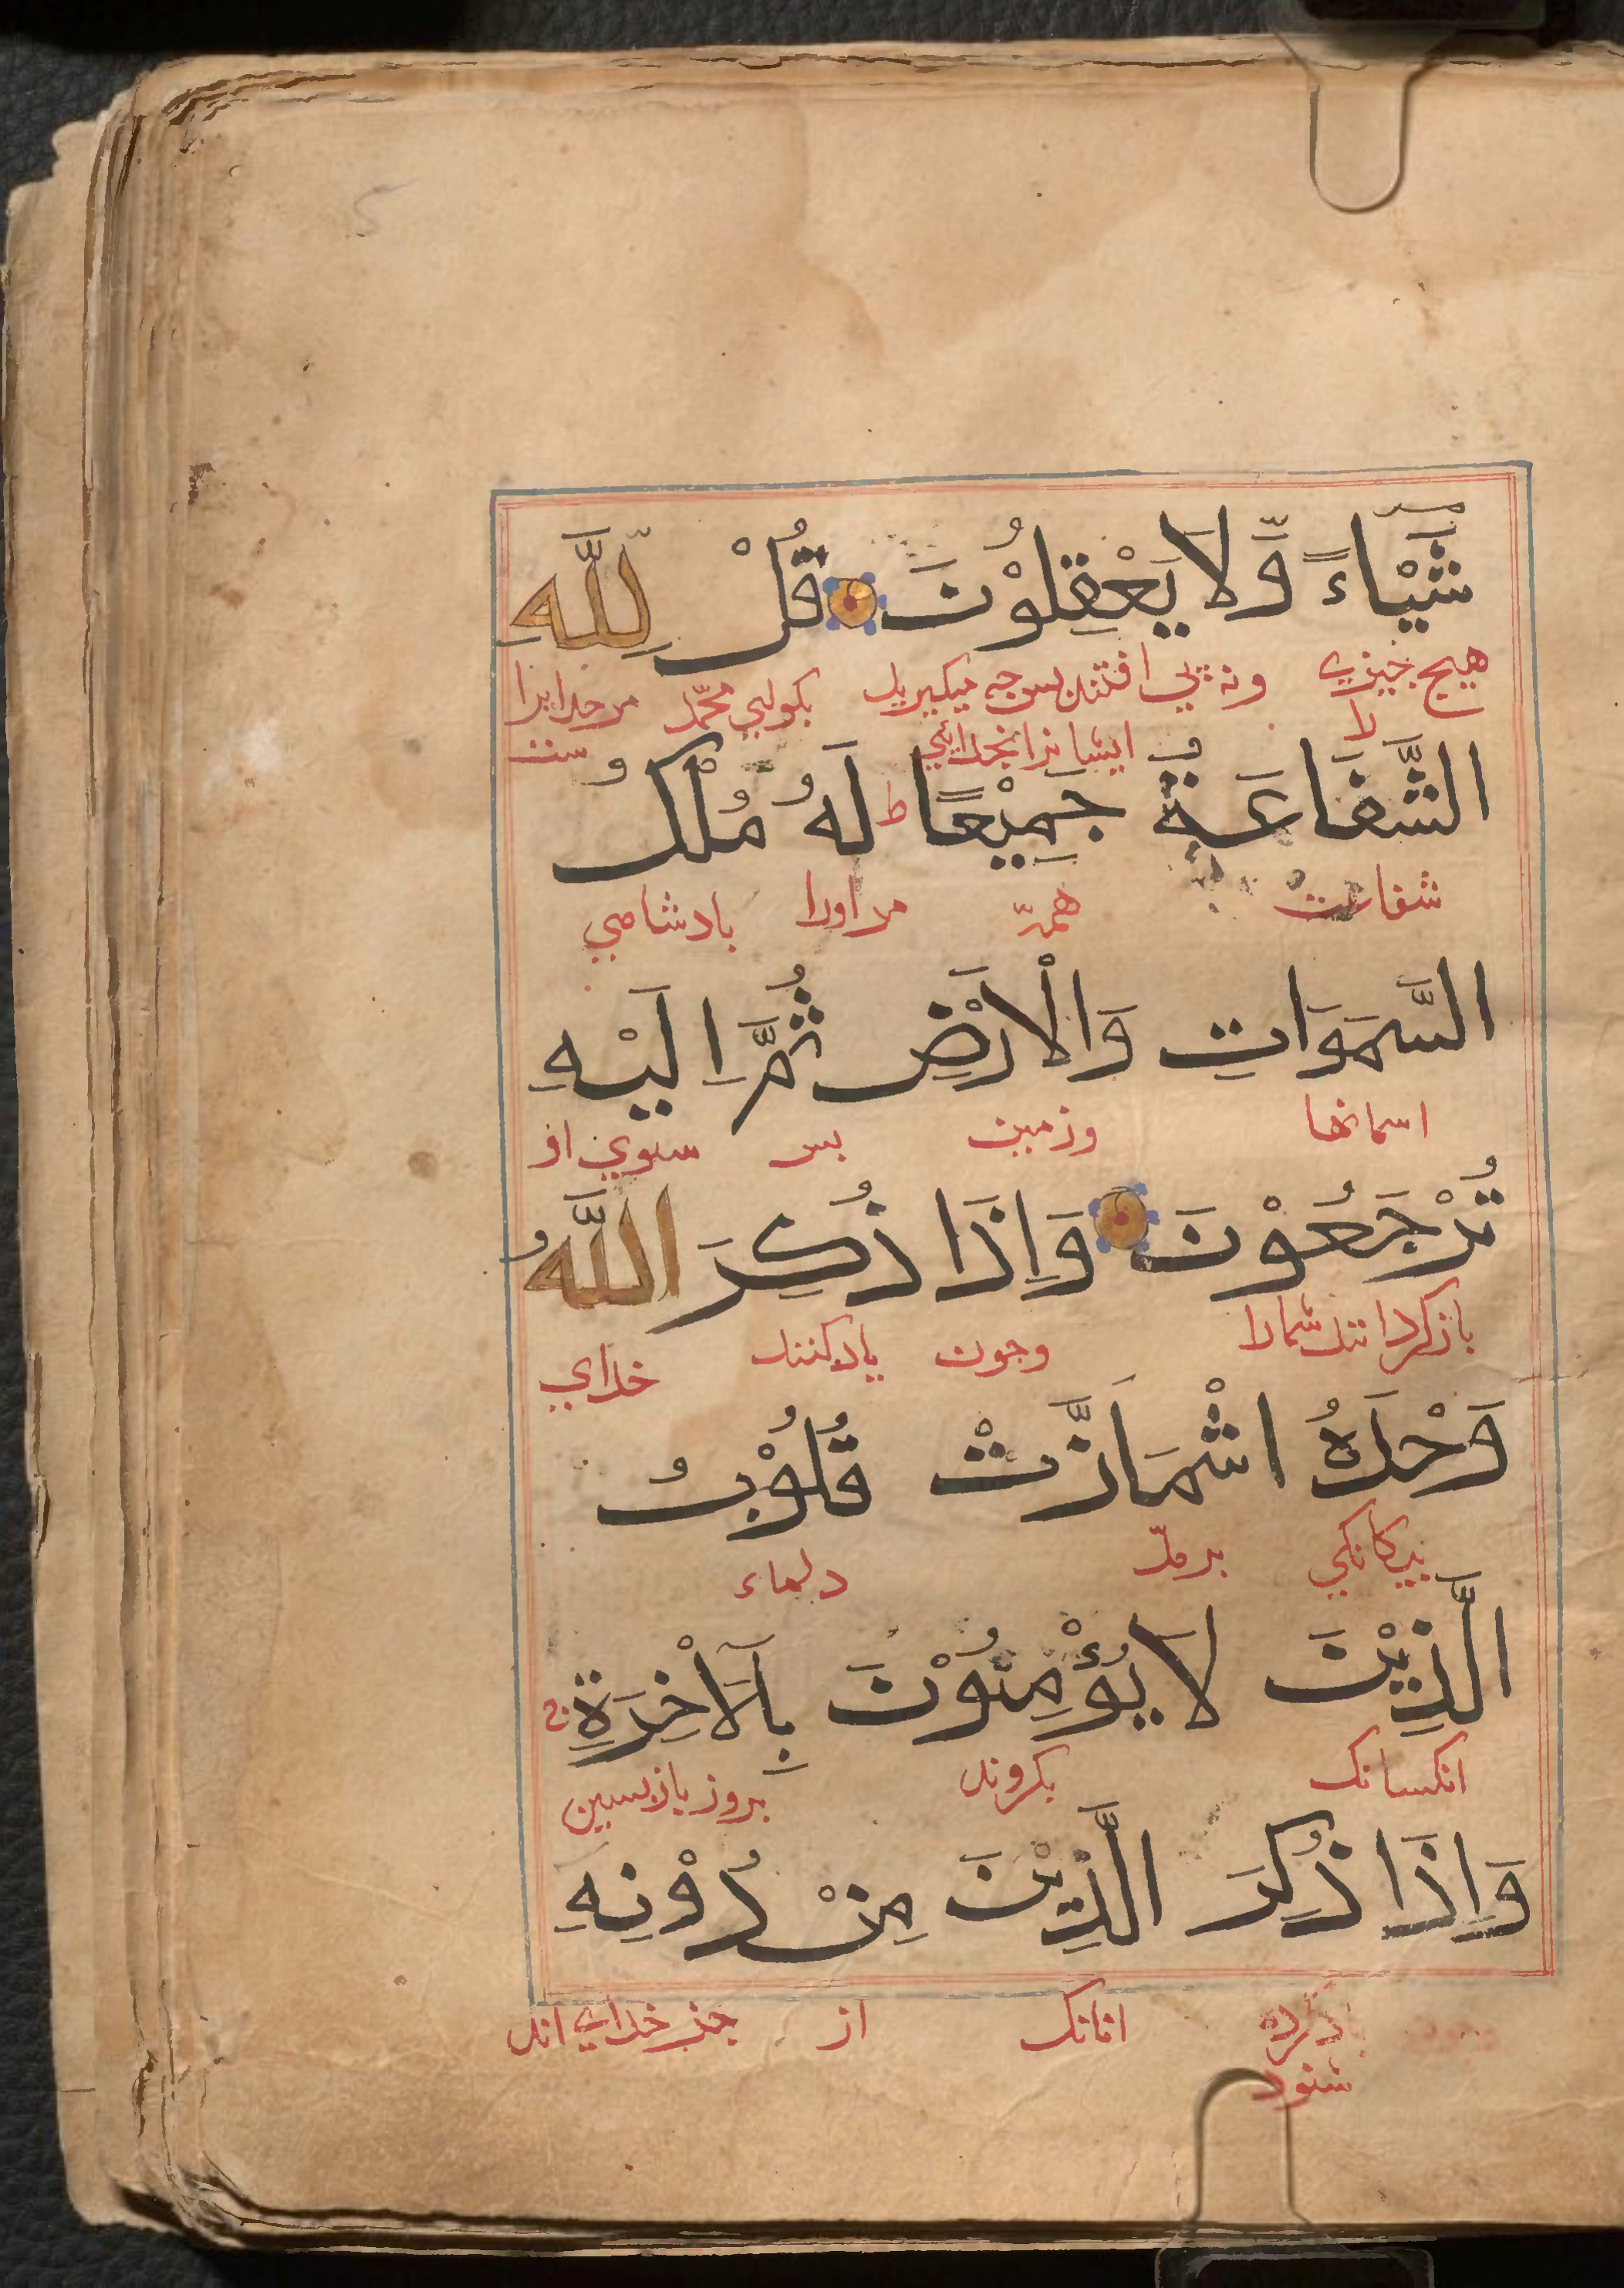 شَيْـاءً وَّلَا يَعْقِلُوْنَ قُلْ لِلّٰهِ
هيچ چيزي ونه می كوليى محمّد مر خدايرا
را ايشانرا بخدائي ست
الشَّفَاعَةُ جَمِيْعًا ط لَهُ مُلْكُ
شفاعت همه مر اورا بادشاهي
السَّمَوَاتِ وَالْاَرْضِ ثُمَّ اِلَيْهِ
اسمانها وزمين بس سوي او
تُرْجَعُوْنَ وَاِذَا ذُكِرَ اللّٰهُ
باز كردانند شمارا وجون ياد كنند خداي
وَحْدَهُ اشْمَاَزَّتْ قُلُوْبُ
بيكانكي برمد دلهاء
الَّذِيْنَ لَا يُؤْمِنُوْنَ بِالْاٰخِرَةِ ج
انكسانك بكروند بروز بازبسين
وَاِذَا ذُكِرَ الَّذِيْنَ مِنْ دُوْنِهِ
انانك از جز خداي اند
شود